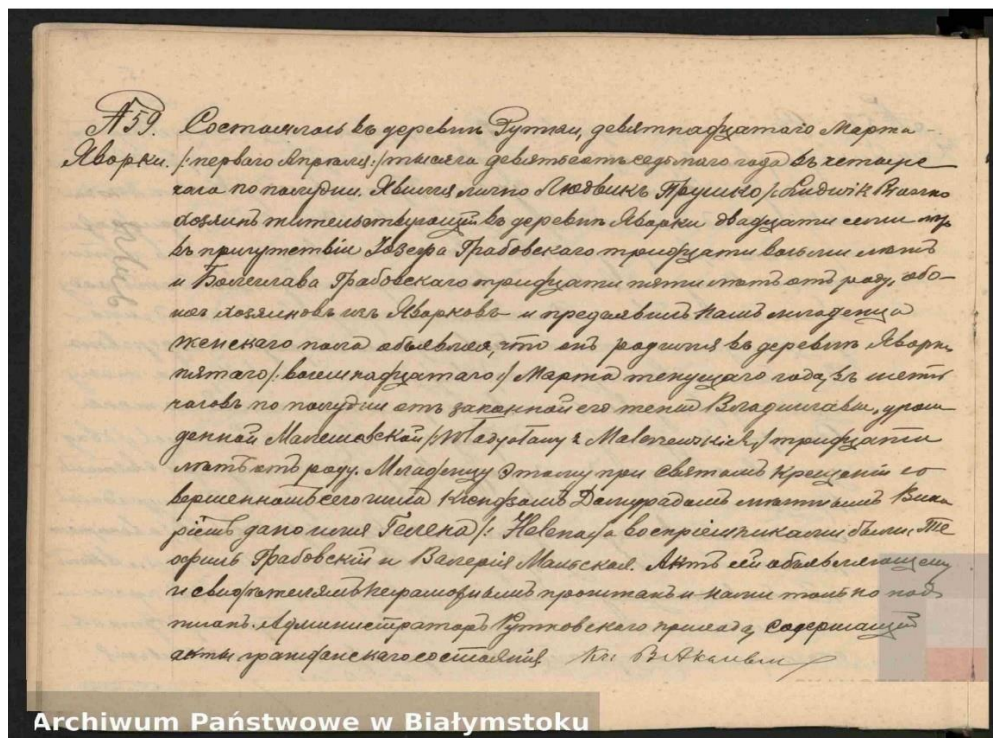 №59.
Яворки.
Состоялось въ деревнѣ Рутки, девятнадцатаго Марта
/:перваго Апрѣля:/ тысяча девятьсотъ седьмаго года въ четыре
часа по полудни. Явился лично Людвикъ Прушко /:Ludwik
хозяинъ жительствующій въ деревнѣ Яворки двадцати семи
въ присутствіи Іозефа Грабовскаго тридцати восьми лѣтъ
и Болеслава Грабовскаго тридцати пяти лѣтъ отъ роду, обо-
ихъ хозяиновъ изъ Яворковъ и предъявилъ намъ младенца
женскаго пола объявляя, что онъ родился въ деревнѣ Яворки
пятаго /:восемнадцатаго:/ Марта текущаго года, въ шесть
часовъ по полудни отъ законной его жены Владиславы, урож-
денной Малешовской тридцати
лѣтъ отъ роду. Младенцу этому при Святомъ Крещеніи со
вершенномъ сего числа Ксендзомъ мѣстнымъ Вика
ріемъ дано имя Гелена /:Helena:/ а воспріемниками были: Те
офилъ Грабовскій и Валерія Актъ сей объявляющему
и свидѣтелямъ неграмотнымъ прочитанъ и нами только под
писанъ. Администраторъ Рутковскаго прихода, содержащій
акты гражданскаго состоянія Кс.
Archiwum Państwowe w Białymstoku